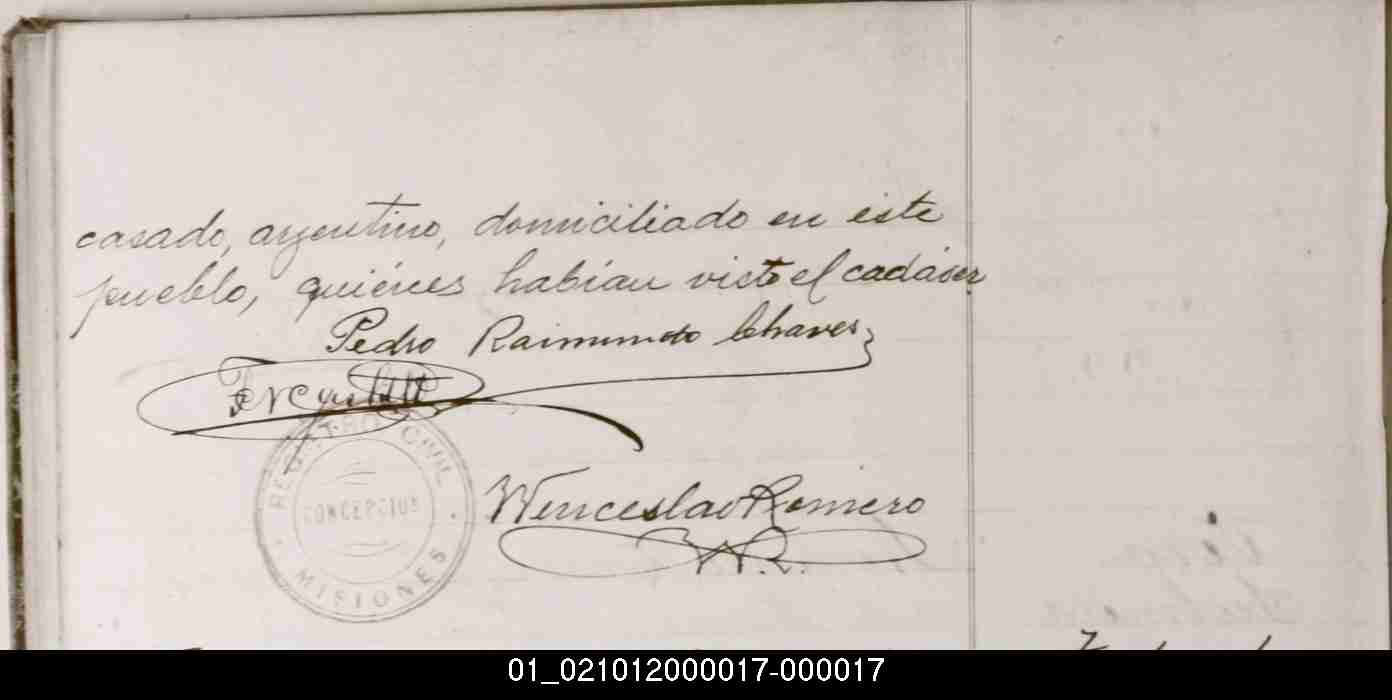 casado, argentino, domiciliado en este
pueblo, quiénes habian visto el cadáver
Pedro Raimundo Chaves
REGISTRO CIVIL
CONCEPCION
MISIONES
Wenceslao Romero
W.R.
01_021012000017-000017